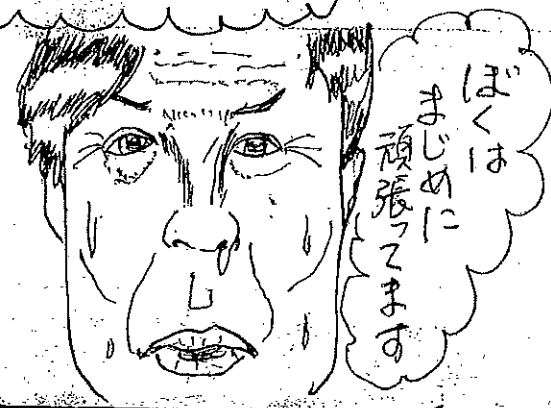 ぼくは
まじめに
頑張ってます